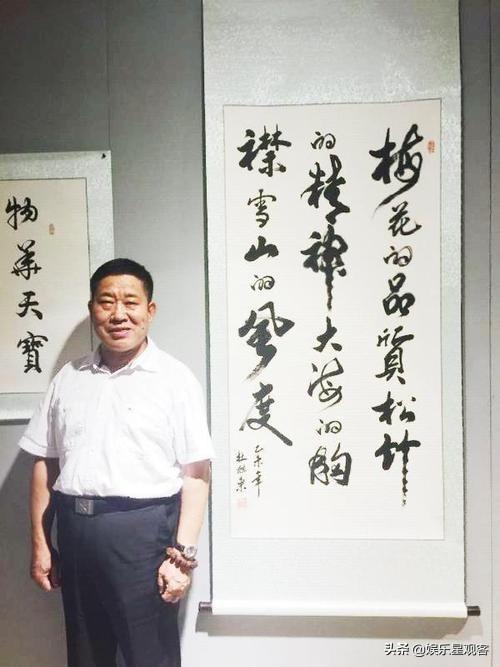 梅花的品質松竹
的精神大海的胸
襟雪山的風度
乙未年
物華天寶
头条 @娱乐星观客